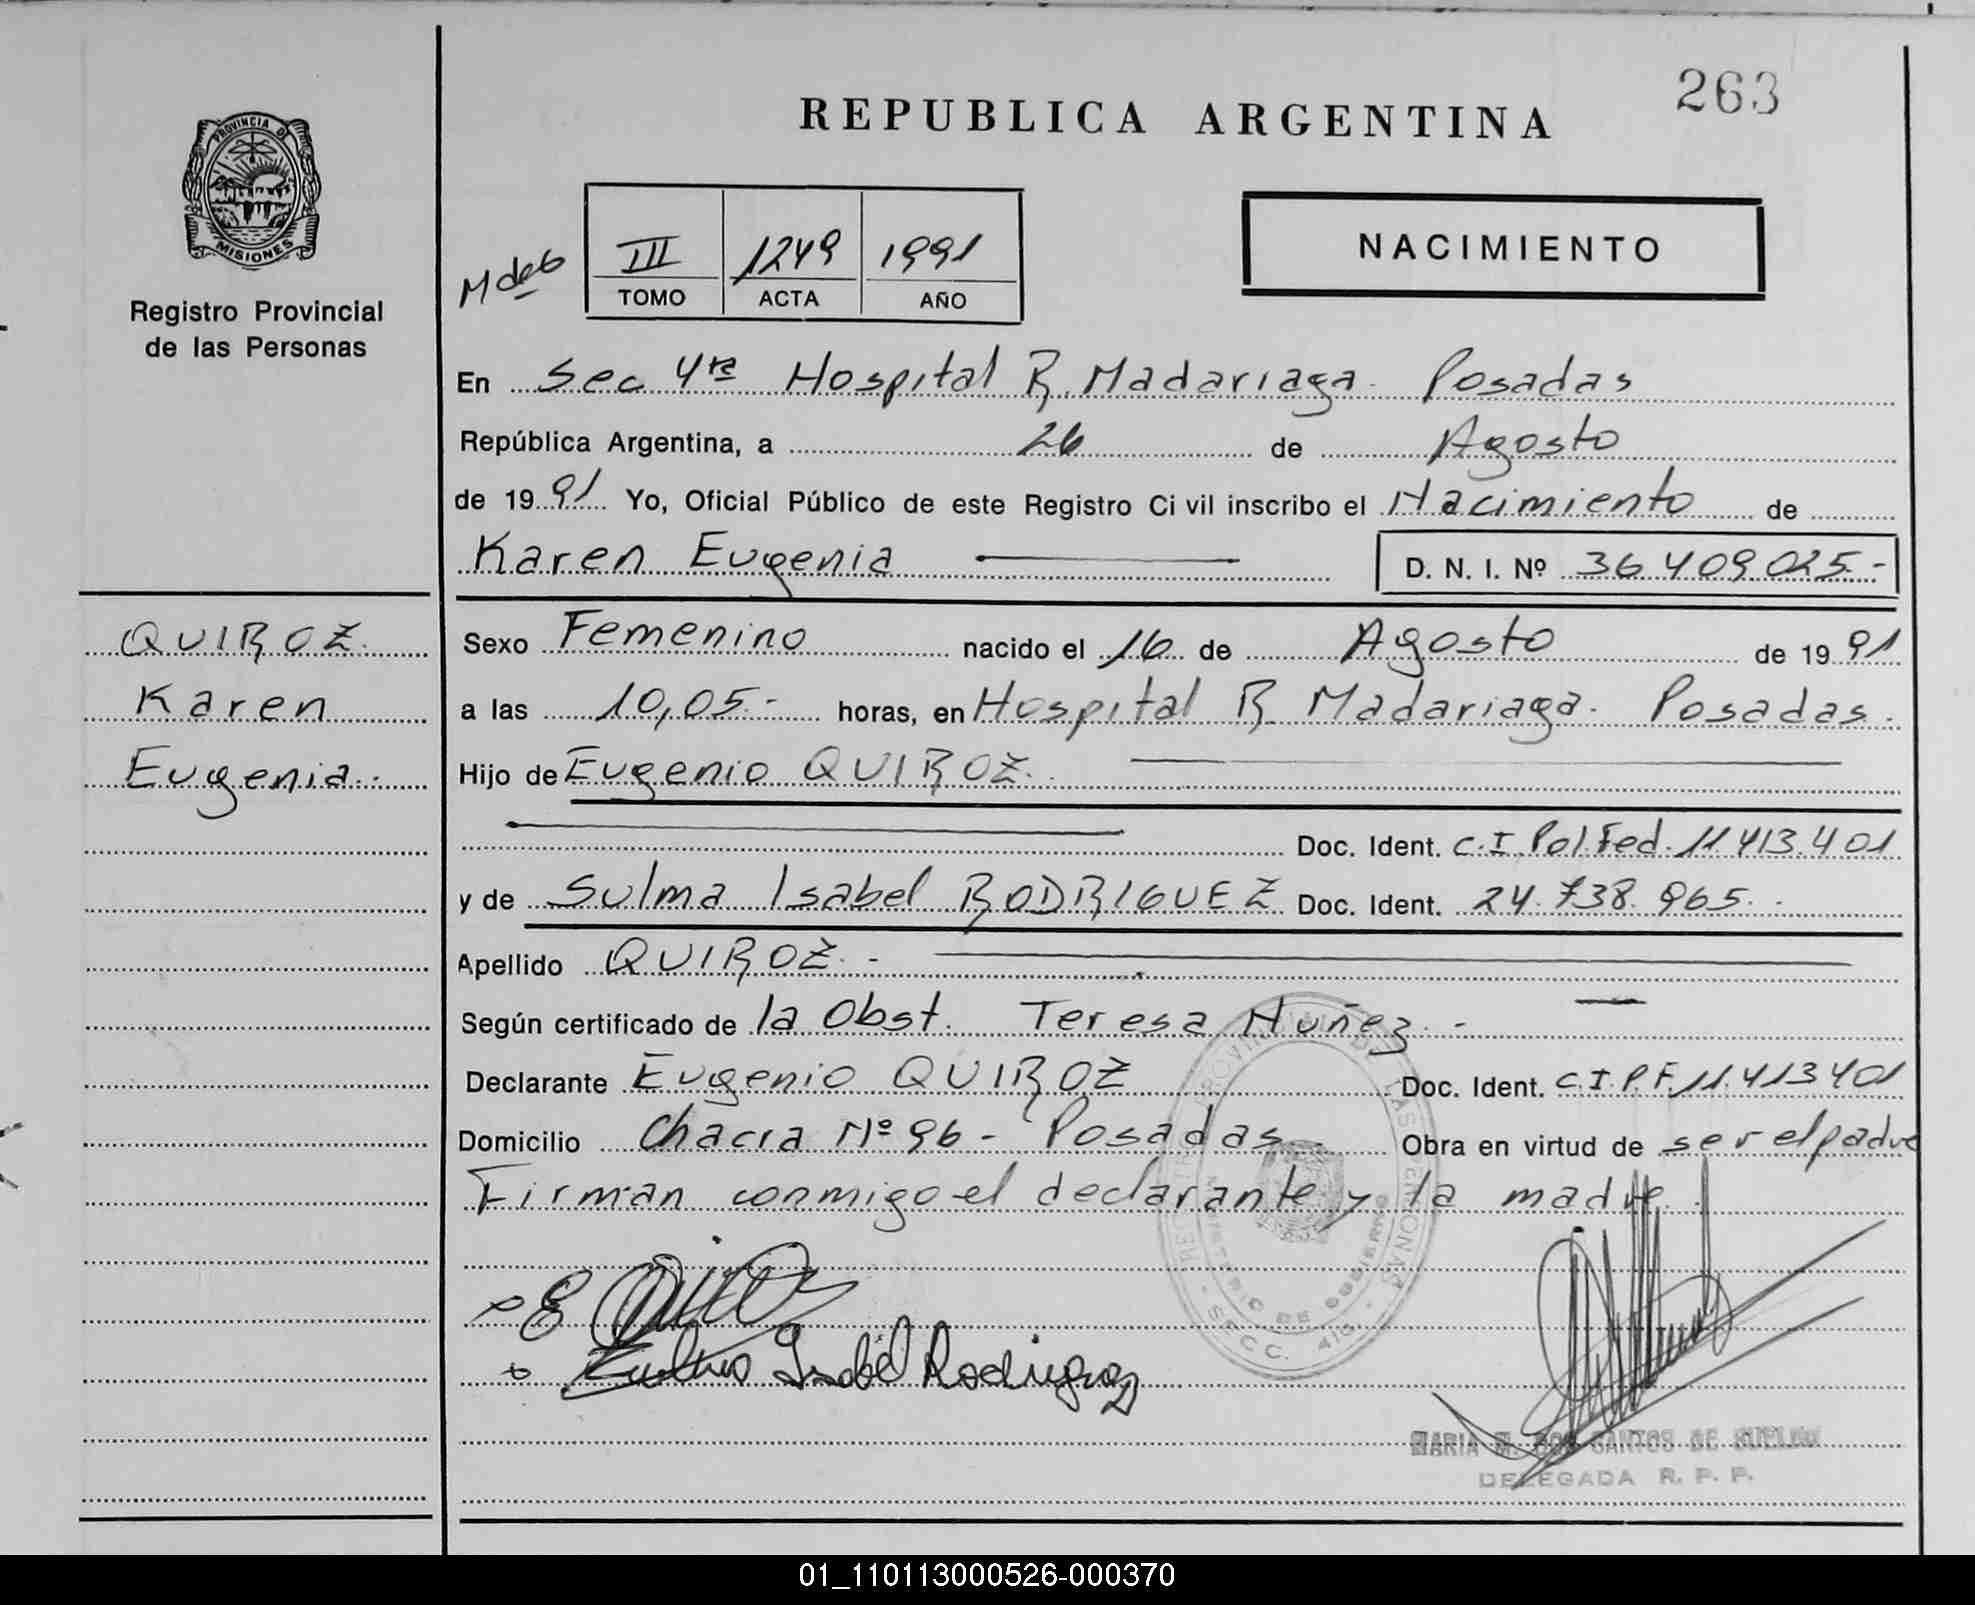 263
REPUBLICA ARGENTINA
PROVINCIA DE
MISIONES
Registro Provincial
de las Personas
III 1249 1991
TOMO ACTA AÑO
NACIMIENTO
En Sec 4ta Hospital R. Madariaga. Posadas
República Argentina, a 26 de Agosto
de 1991 Yo, Oficial Público de este Registro Civil inscribo el Nacimiento de
Karen Eugenia D. N. I. Nº 36409025.-
QUIROZ.
Karen
Eugenia.-
Sexo Femenino nacido el 16 de Agosto de 1991
a las 10,05.- horas, en Hospital R. Madariaga. Posadas.
Hijo de Eugenio QUIROZ.
Doc. Ident. C.I. Pol. Fed. 11.413.401
y de Sulma Isabel RODRIGUEZ Doc. Ident. 24.738.965.-
Apellido QUIROZ.-
Según certificado de la Obst. Teresa Nuñez.-
Declarante Eugenio QUIROZ Doc. Ident. C.I.P.F. 11.413401
Domicilio Chacra Nº 96 - Posadas. Obra en virtud de ser el padre
Firman conmigo el declarante y la madre.
E Quiroz
Isabel Rodriguez
MINISTERIO DE GOBIERNO
MARIA M. DOS SANTOS DE
DELEGADA R. P. P.
01_110113000526-000370